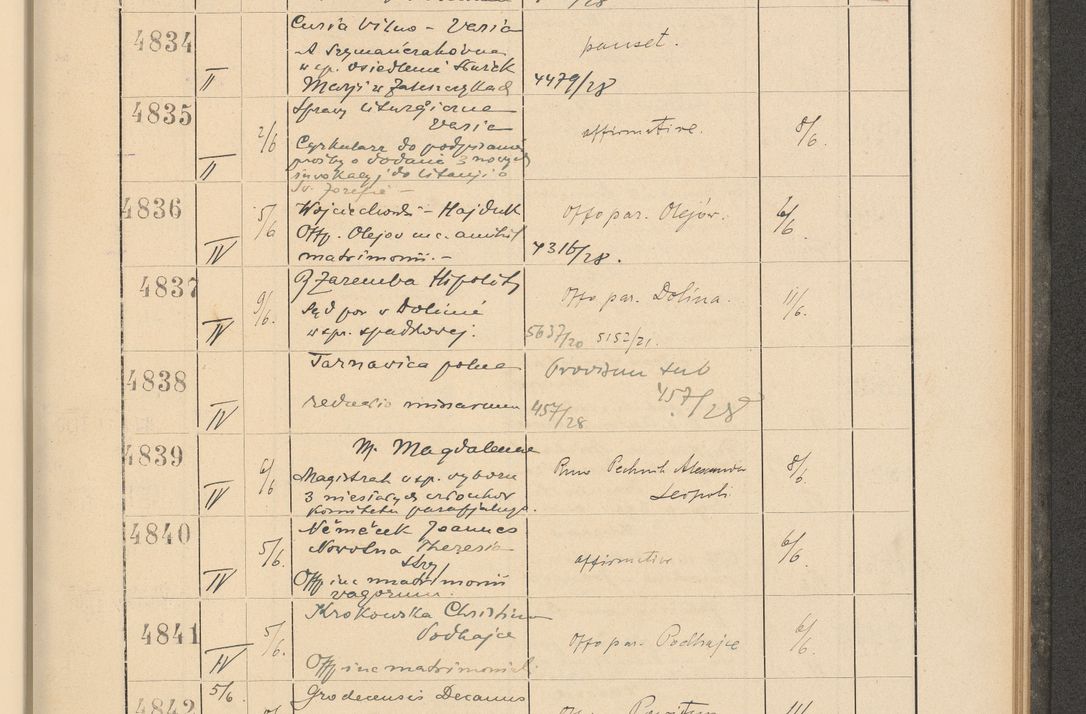 4834
II
Curia Vilno - Varia
A Szymańczakówna
w sp. osiedlenia Sturek
Marji w Zaleszczykach
pauset.
4479/28
4835
II
2/6
Sprawy liturgiczne
Varia
Cyrkularz do podpisania
prośby o dodanie 3 nowych
inwokacyj do litanji o
św. Józefie -
affirmative.
8/6.
4836
IV
5/6
Wojciechowski - Hajduk
Off. Olejow inc.
matrimonii. -
Offo par. Olejów.
4316/28.
6/6.
4837
IV
9/6.
Zaremba Hipolit
Sąd pow w Dolinie
w spr. spadkowej.
Offo par. Dolina.
5637/20 5152/21.
11/6.
4838
IV
Tarnawica polna
reductio missarum
Provisum sub
457/28
457/28
4839
IV
6/6
M. Magdalenae
Magistrat w sp. wyboru
3 miesiących członków
Komitetu parafjalnego.
Pechnik Alexander
Leopoli
8/6.
4840
IV
5/6.
Němeček Joannes
Novolna Theresia
Stryj
Off inc matrimonii
vagorum.
affirmative.
6/6.
4841
IV
5/6.
Krokowska Christina
Podhajce
Off inc matrimonii
Offo par. Podhajce
6/6.
4842
5/6.
Grodecensis Decanus